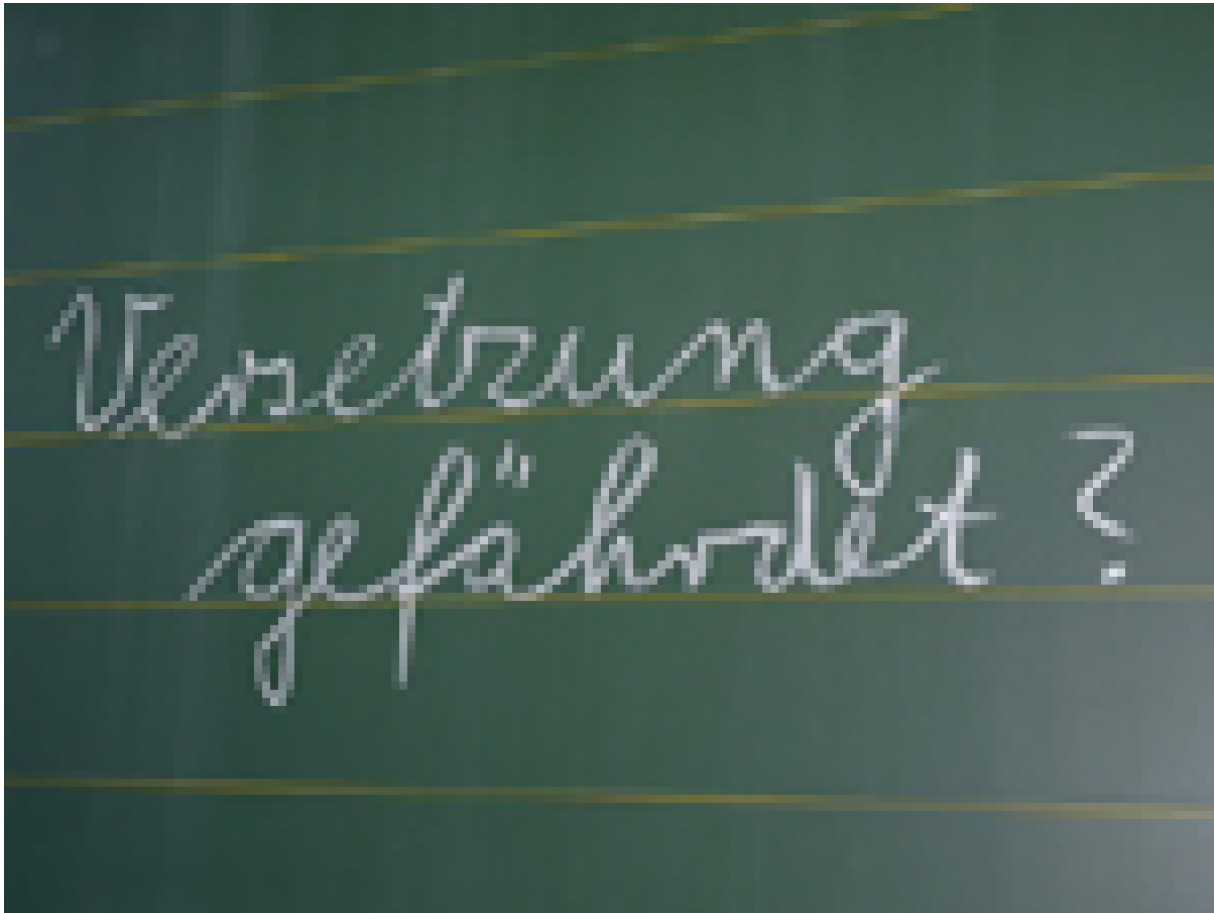 Versetzung
gefährdet?